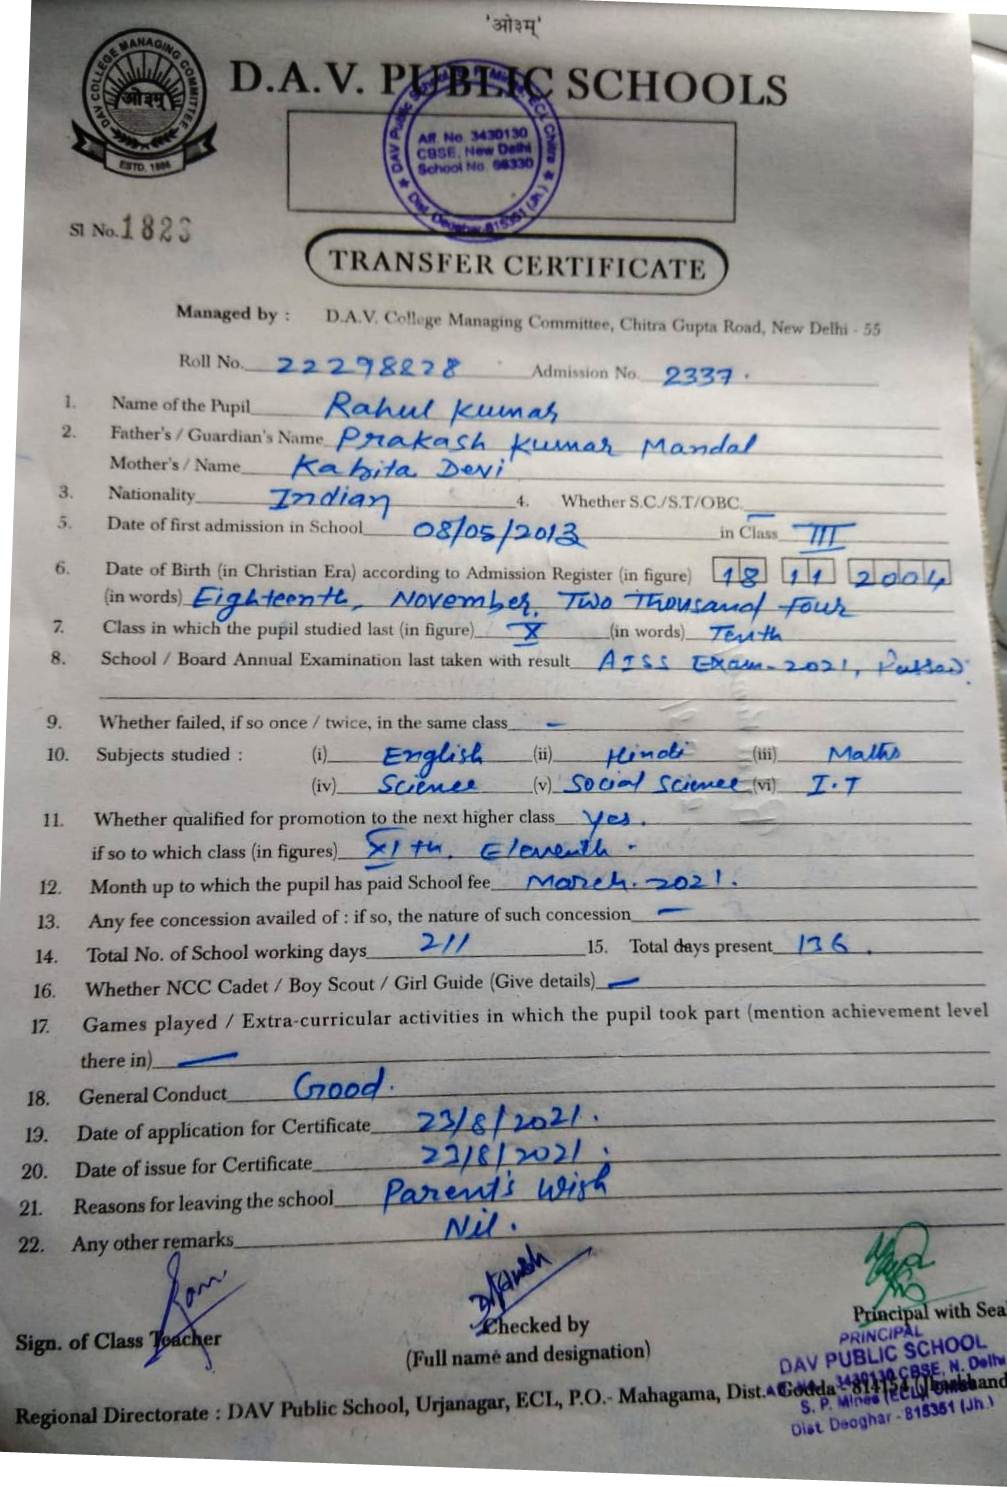 'ओ३म्'
DAV COLLEGE MANAGING COMMITTEE
ओ३म्
ESTD. 1886
D.A.V. PUBLIC SCHOOLS
Aff. No. 3430130
CBSE, New Delhi
School No. 66330
Dist. Deoghar-815351 (Jh.)
Sl No. 1823
TRANSFER CERTIFICATE
Managed by : D.A.V. College Managing Committee, Chitra Gupta Road, New Delhi - 55
Roll No. 22298828 Admission No. 2337.
1. Name of the Pupil Rahul Kumar
2. Father's / Guardian's Name Prakash Kumar Mandal
Mother's / Name Kabita Devi
3. Nationality Indian 4. Whether S.C./S.T/OBC —
5. Date of first admission in School 08/05/2013 in Class III
6. Date of Birth (in Christian Era) according to Admission Register (in figure) 18 11 2004
(in words) Eighteenth, November, Two Thousand Four
7. Class in which the pupil studied last (in figure) X (in words) Tenth
8. School / Board Annual Examination last taken with result AISS Exam-2021, Passed.
9. Whether failed, if so once / twice, in the same class —
10. Subjects studied : (i) English (ii) Hindi (iii) Maths
(iv) Science (v) Social Science (vi) I.T
11. Whether qualified for promotion to the next higher class Yes.
if so to which class (in figures) XIth, Eleventh.
12. Month up to which the pupil has paid School fee March-2021.
13. Any fee concession availed of : if so, the nature of such concession —
14. Total No. of School working days 211 15. Total days present 136.
16. Whether NCC Cadet / Boy Scout / Girl Guide (Give details) —
17. Games played / Extra-curricular activities in which the pupil took part (mention achievement level
there in) —
18. General Conduct Good.
19. Date of application for Certificate 23/8/2021.
20. Date of issue for Certificate 23/8/2021.
21. Reasons for leaving the school Parent's Wish
22. Any other remarks Nil.
Sign. of Class Teacher Checked by Principal with Sea
(Full name and designation)
PRINCIPAL
DAV PUBLIC SCHOOL
3430130 CBSE, N. Delhi
S. P. Mines
Dist. Deoghar - 815351 (Jh.)
Regional Directorate : DAV Public School, Urjanagar, ECL, P.O.- Mahagama, Dist. Godda - 814154 (Jharkhand